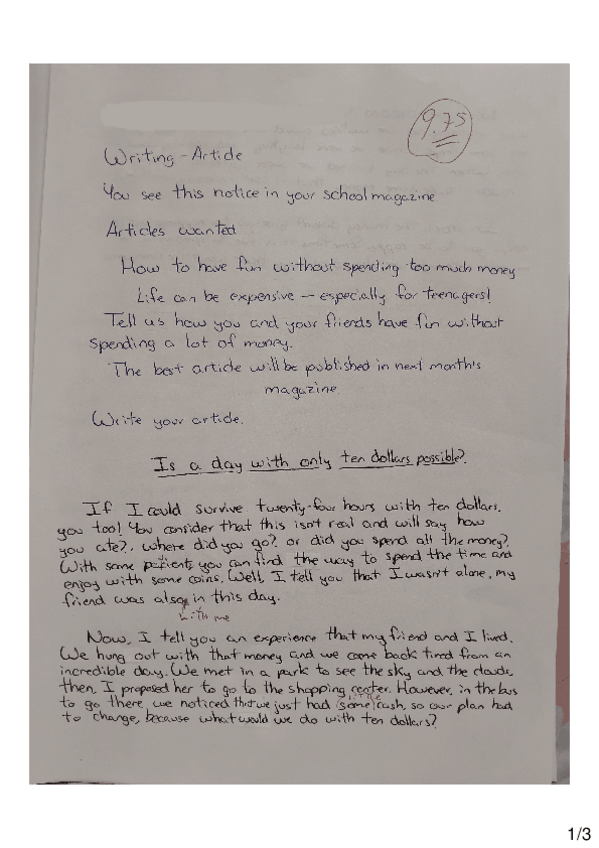 9.75
Writing - Article
You see this notice in your school magazine
Articles wanted
How to have fun without spending too much money
Life can be expensive - especially for teenagers!
Tell us how you and your friends have fun without
spending a lot of money.
The best article will be published in next month's
magazine.
Write your article.
Is a day with only ten dollars possible?
If I could survive twenty-four hours with ten dollars,
you too! You consider that this isn't real and will say how
you ate?, where did you go? or did you spend all the money?.
With some you can find the way to spend the time and
enjoy with some coins. Well, I tell you that I wasn't alone, my
friend was also in this day.
with me
Now, I tell you an experience that my friend and I lived.
We hung out with that money and we came back tired from an
incredible day. We met in a park to see the sky and the clouds,
then, I proposed her to go to the shopping center. However, in the bus
little
to go there we noticed that we just had (some) cash, so our plan had
to change, because what would we do with ten dollars?
1/3